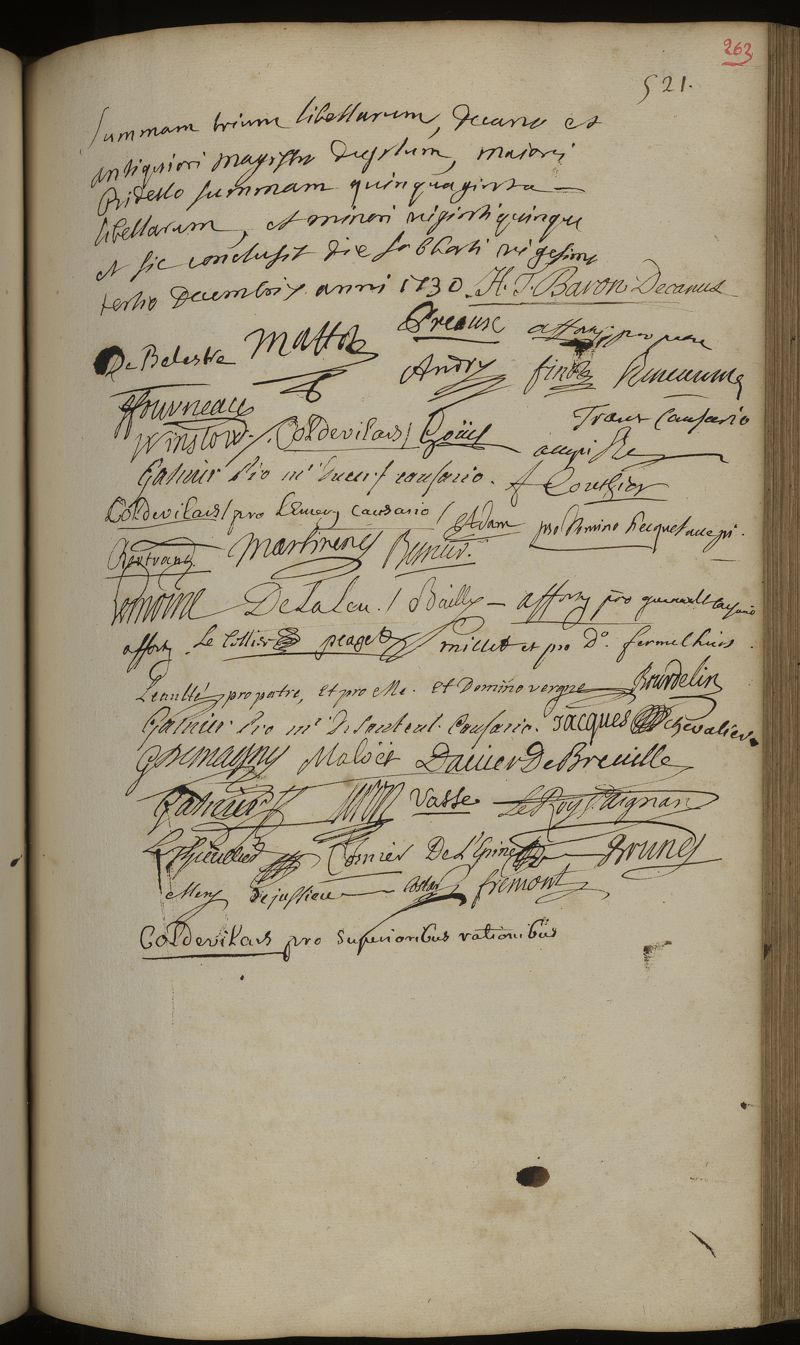 263
521.
Summam trium libellarum, decano et
antiquiori magistro duplum, maiori
Bidello summam quinquaginta —
libellarum, et minori vigintiquinque
et sic conclusit die sabbati vigesima
tertio decembris anni 1730. H. T. Baron Decanus
De Belestre Mattot Preaux
Andry
ffourneau
Winslow. Coldevilars / Goüel
Trans causario
accepi
Gahuir Pro mro causario.
Coldevilars / pro Lemery causario / Adam pro Domino hecquet accepi.
Bertrand Martineng
Lemoine De La Leu. / Bailly — afforty pro causario
afforty. Le tellier peaget millet et pro Do. fermelhuis.
Leaulté pro patre, et pro Me. et Domino vergne Bourdelin
Gahuir Pro mro De santeul causario. Jacques chevalier
Malöet De Breuille
Gahuir Vasse Le Roy St aignan
Cosnier De L'Epine Bruney
Mery De jussieu fremont
Coldevilars pro superioribus rationibus